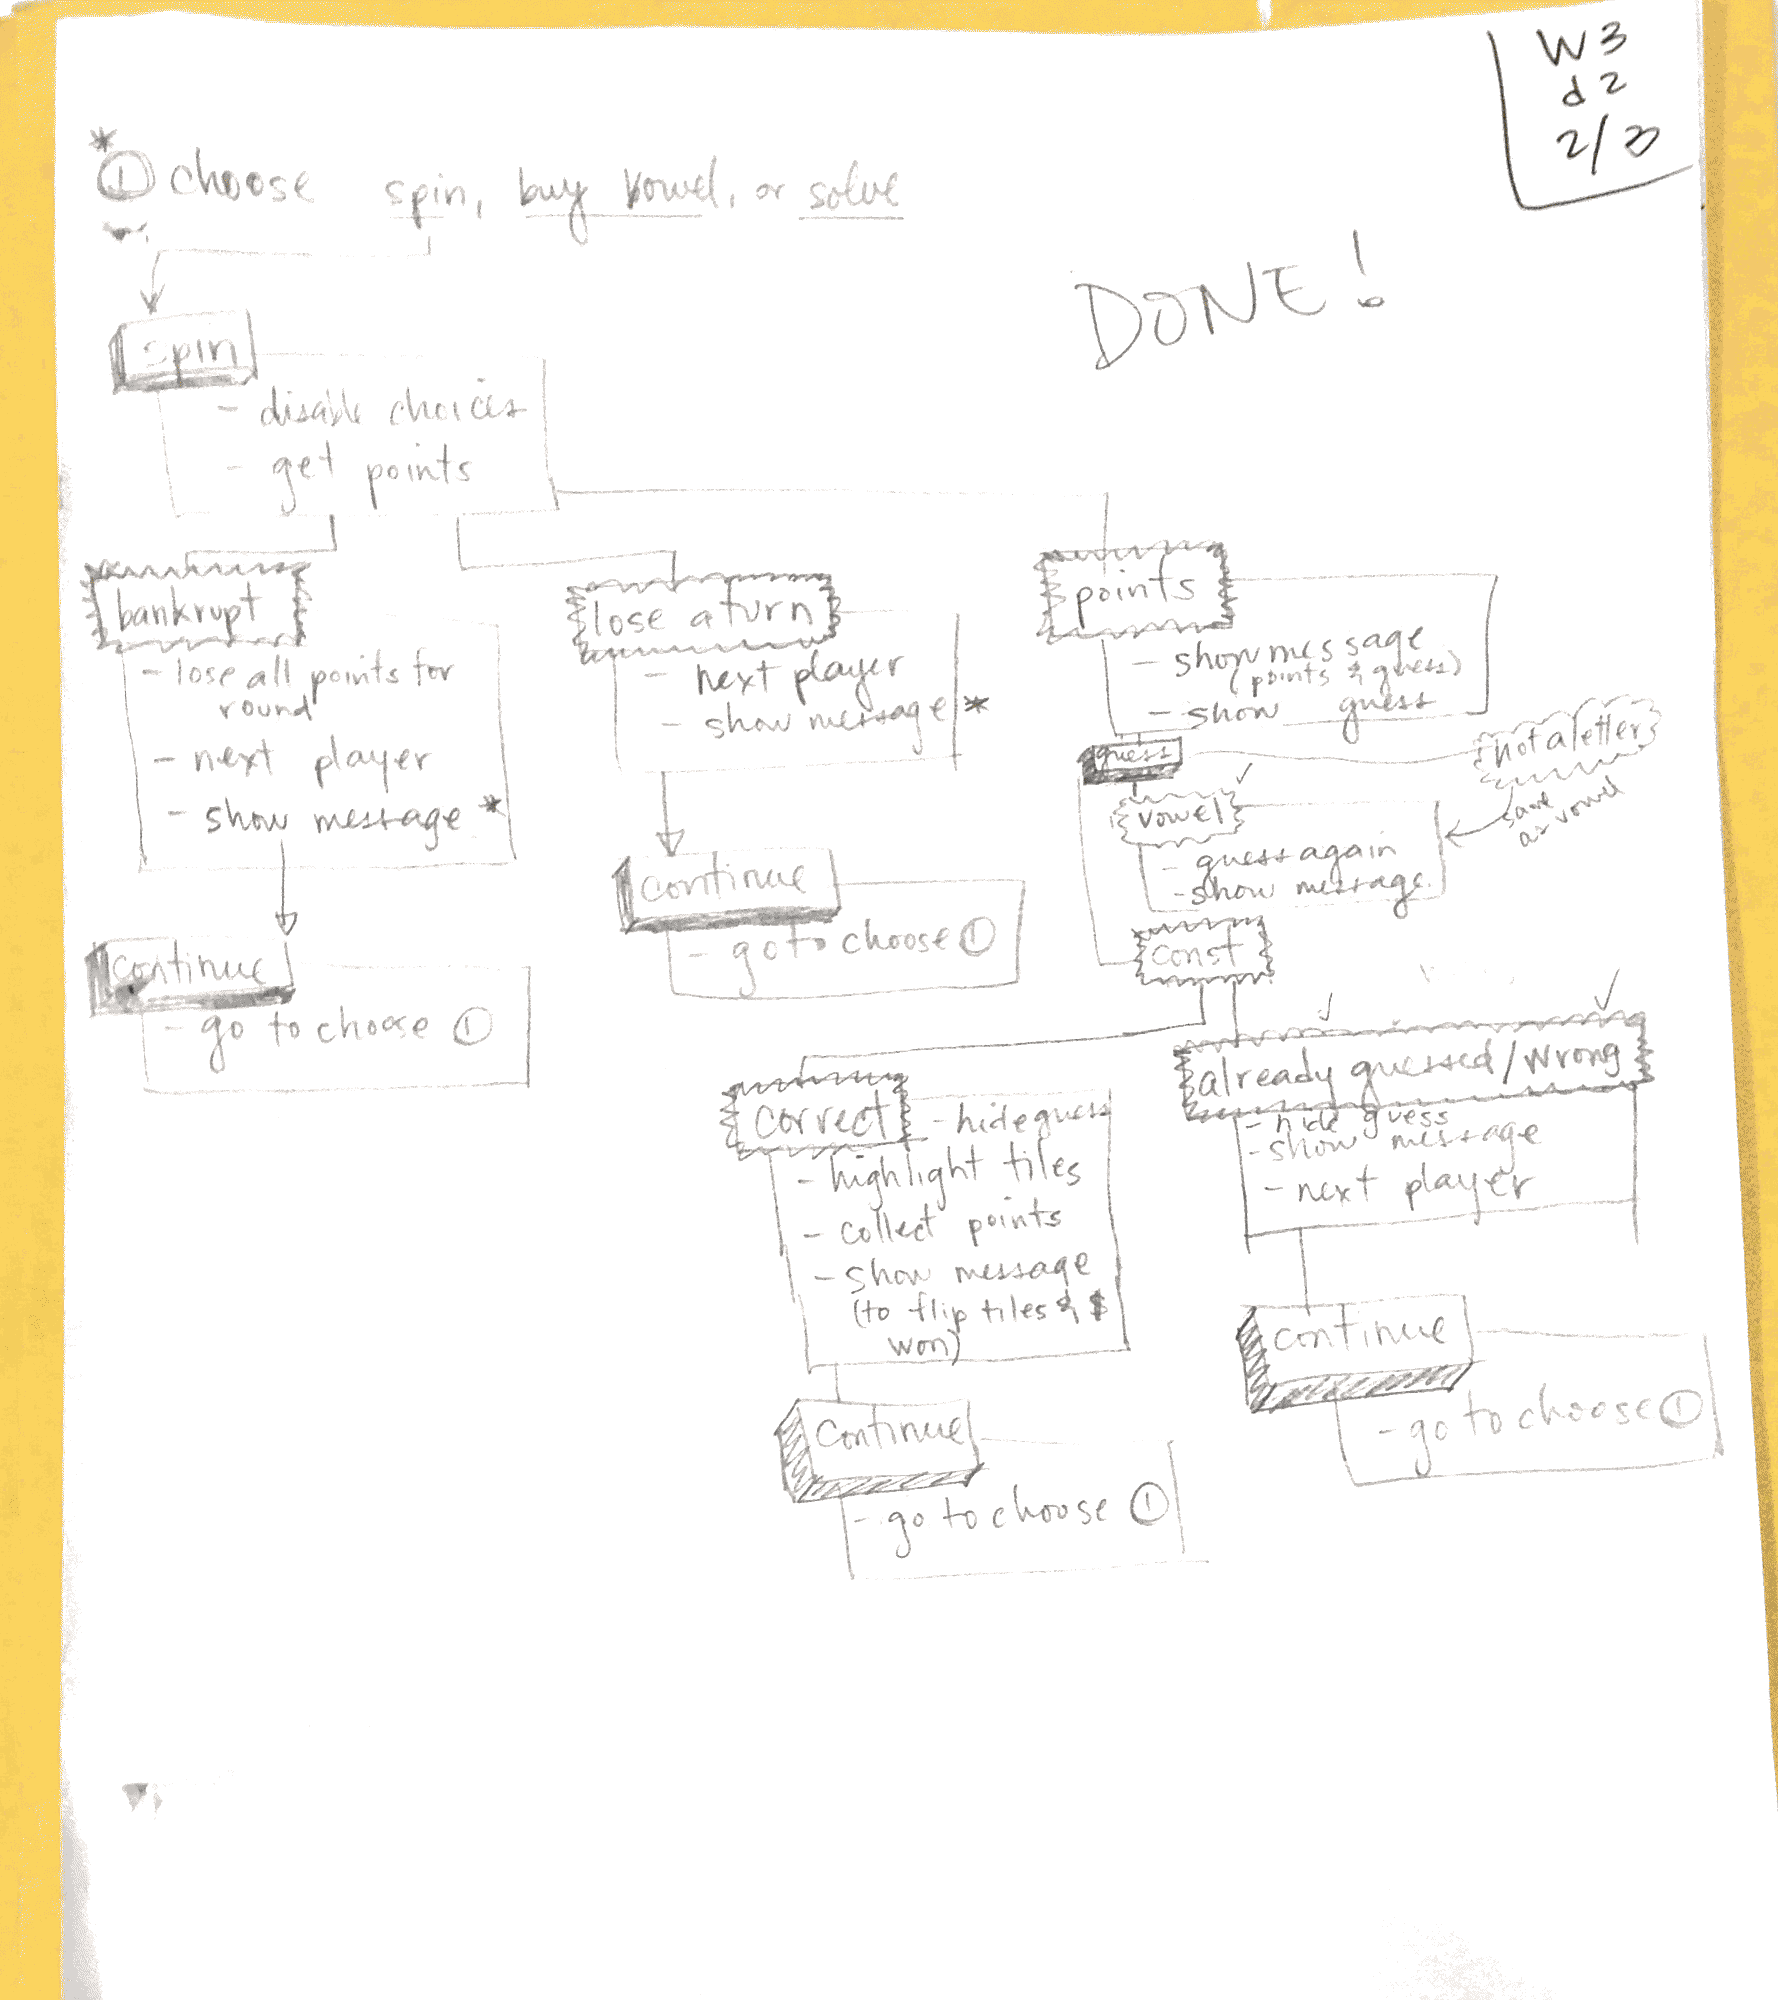 W3
d2
2/3
* ① choose spin, buy vowel, or solve
DONE!
spin
- disable choices
- get points
bankrupt
- lose all points for
round
- next player
- show message *
continue
- go to choose ①
lose a turn
- next player
- show message *
continue
- go to choose ①
points
- show message
(points & guess)
- show guess
guess
not a letter
same
as vowel
vowel
- guess again
- show message
const
correct
- hide guess
- highlight tiles
- collect points
- show message
(to flip tiles & $
won)
continue
- go to choose ①
already guessed/wrong
- hide guess
- show message
- next player
continue
- go to choose ①